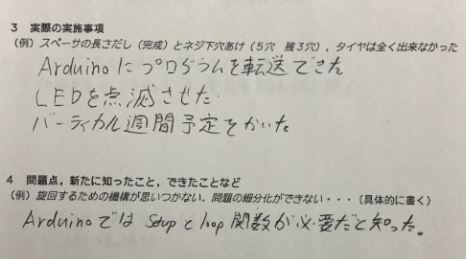 3 実際の実施事項
(例) スペーサの長さだし(完成)とネジ下穴あけ(5穴 残3穴),タイヤは全く出来なかった
Arduinoにプログラムを転送できた
LEDを点滅させた.
バーティカル週間予定をかいた
4 問題点,新たに知ったこと,できたことなど
(例) 旋回するための機構が思いつかない.問題の細分化ができない・・・(具体的に書く)
Arduinoでは Setupとloop関数が必要だと知った。